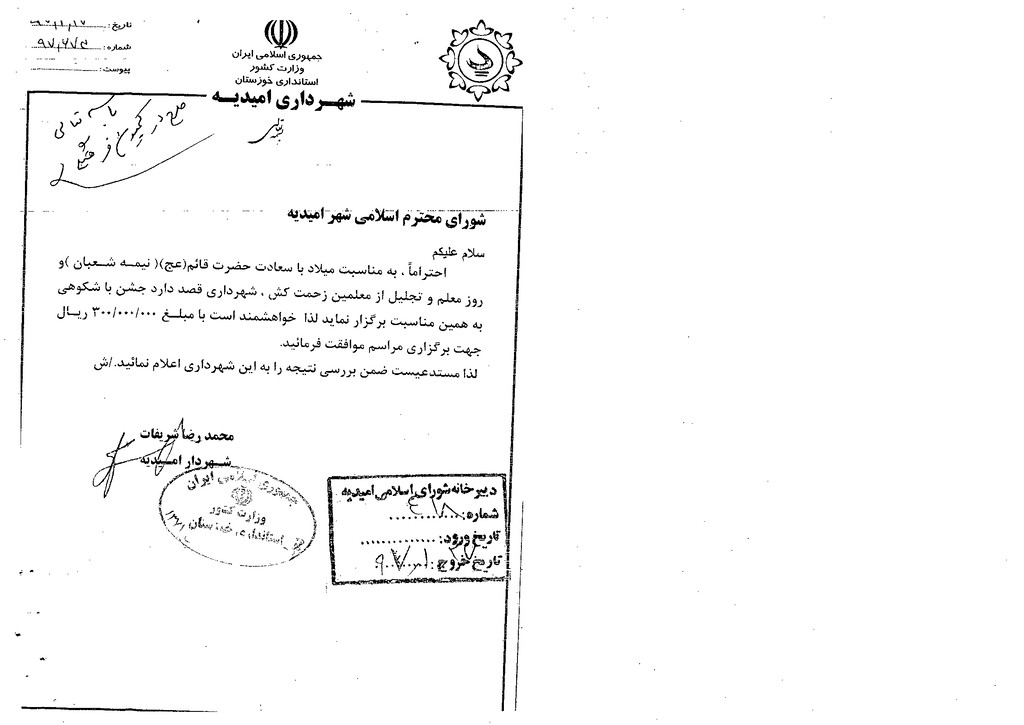 تاریخ:
شماره: ۹۷٫۶۷۴
پیوست:
جمهوری اسلامی ایران
وزارت کشور
استانداری خوزستان
شهرداری امیدیه
باسمه تعالی
شورای محترم اسلامی شهر امیدیه
سلام علیکم
احتراماً ، به مناسبت میلاد با سعادت حضرت قائم(عج)( نیمه شعبان )و
روز معلم و تجلیل از معلمین زحمت کش ، شهرداری قصد دارد جشن با شکوهی
به همین مناسبت برگزار نماید لذا خواهشمند است با مبلغ ۳۰۰/۰۰۰/۰۰۰ ریال
جهت برگزاری مراسم موافقت فرمائید.
لذا مستدعیست ضمن بررسی نتیجه را به این شهرداری اعلام نمائید./ش
محمد رضا شریفات
شهردار امیدیه
جمهوری اسلامی ایران
وزارت کشور
استانداری خوزستان
دبیرخانه شورای اسلامی امیدیه
شماره:
تاریخ ورود:
تاریخ خروج: